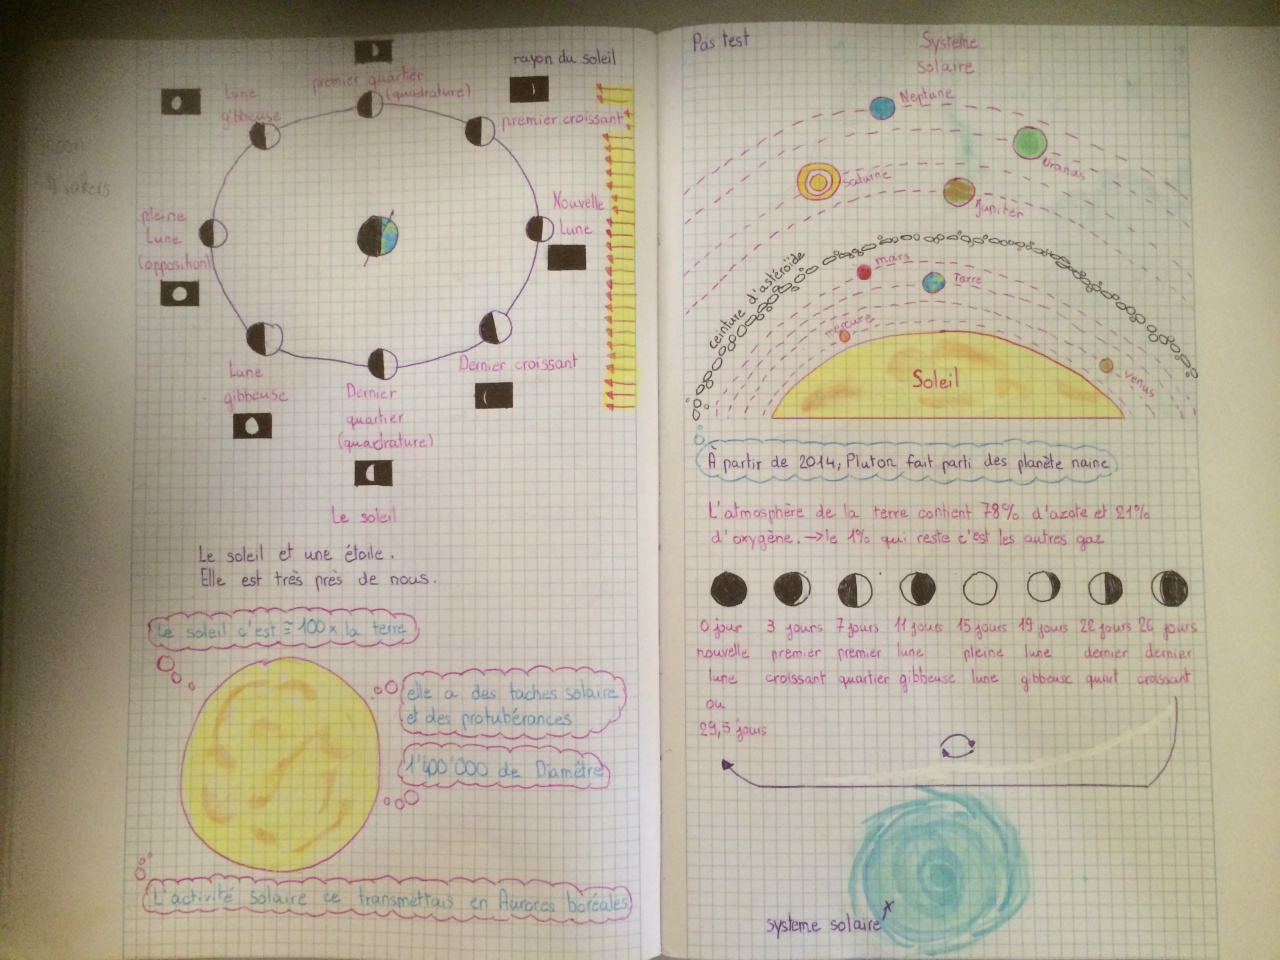 rayon du soleil
premier quartier
(quadrature)
Lune
gibbeuse
premier croissant
Nouvelle
Lune
pleine
Lune
(opposition)
Lune
gibbeuse
Dernier
quartier
(quadrature)
Dernier croissant
Le soleil
Le soleil et une étoile.
Elle est très près de nous.
Le soleil c'est ≅ 100x la terre
elle a des taches solaire
et des protubérances
1'400'000 de Diamètre
L'activité solaire ce transmettais en Aurores boréales
Pas test
Systeme
solaire
Neptune
Uranus
Saturne
Jupiter
ceinture d'astéroïde
mars
Terre
mercure
venus
Soleil
À partir de 2014, Pluton fait parti des planète naine
L'atmosphère de la terre contient 78% d'azote et 21%
d'oxygène. → le 1% qui reste c'est les autres gaz
0 jour 3 jours 7 jours 11 jours 15 jours 19 jours 22 jours 26 jours
nouvelle premier premier lune pleine lune dernier dernier
lune croissant quartier gibbeuse lune gibbeuse quart croissant
ou
29,5 jours
systeme solaire